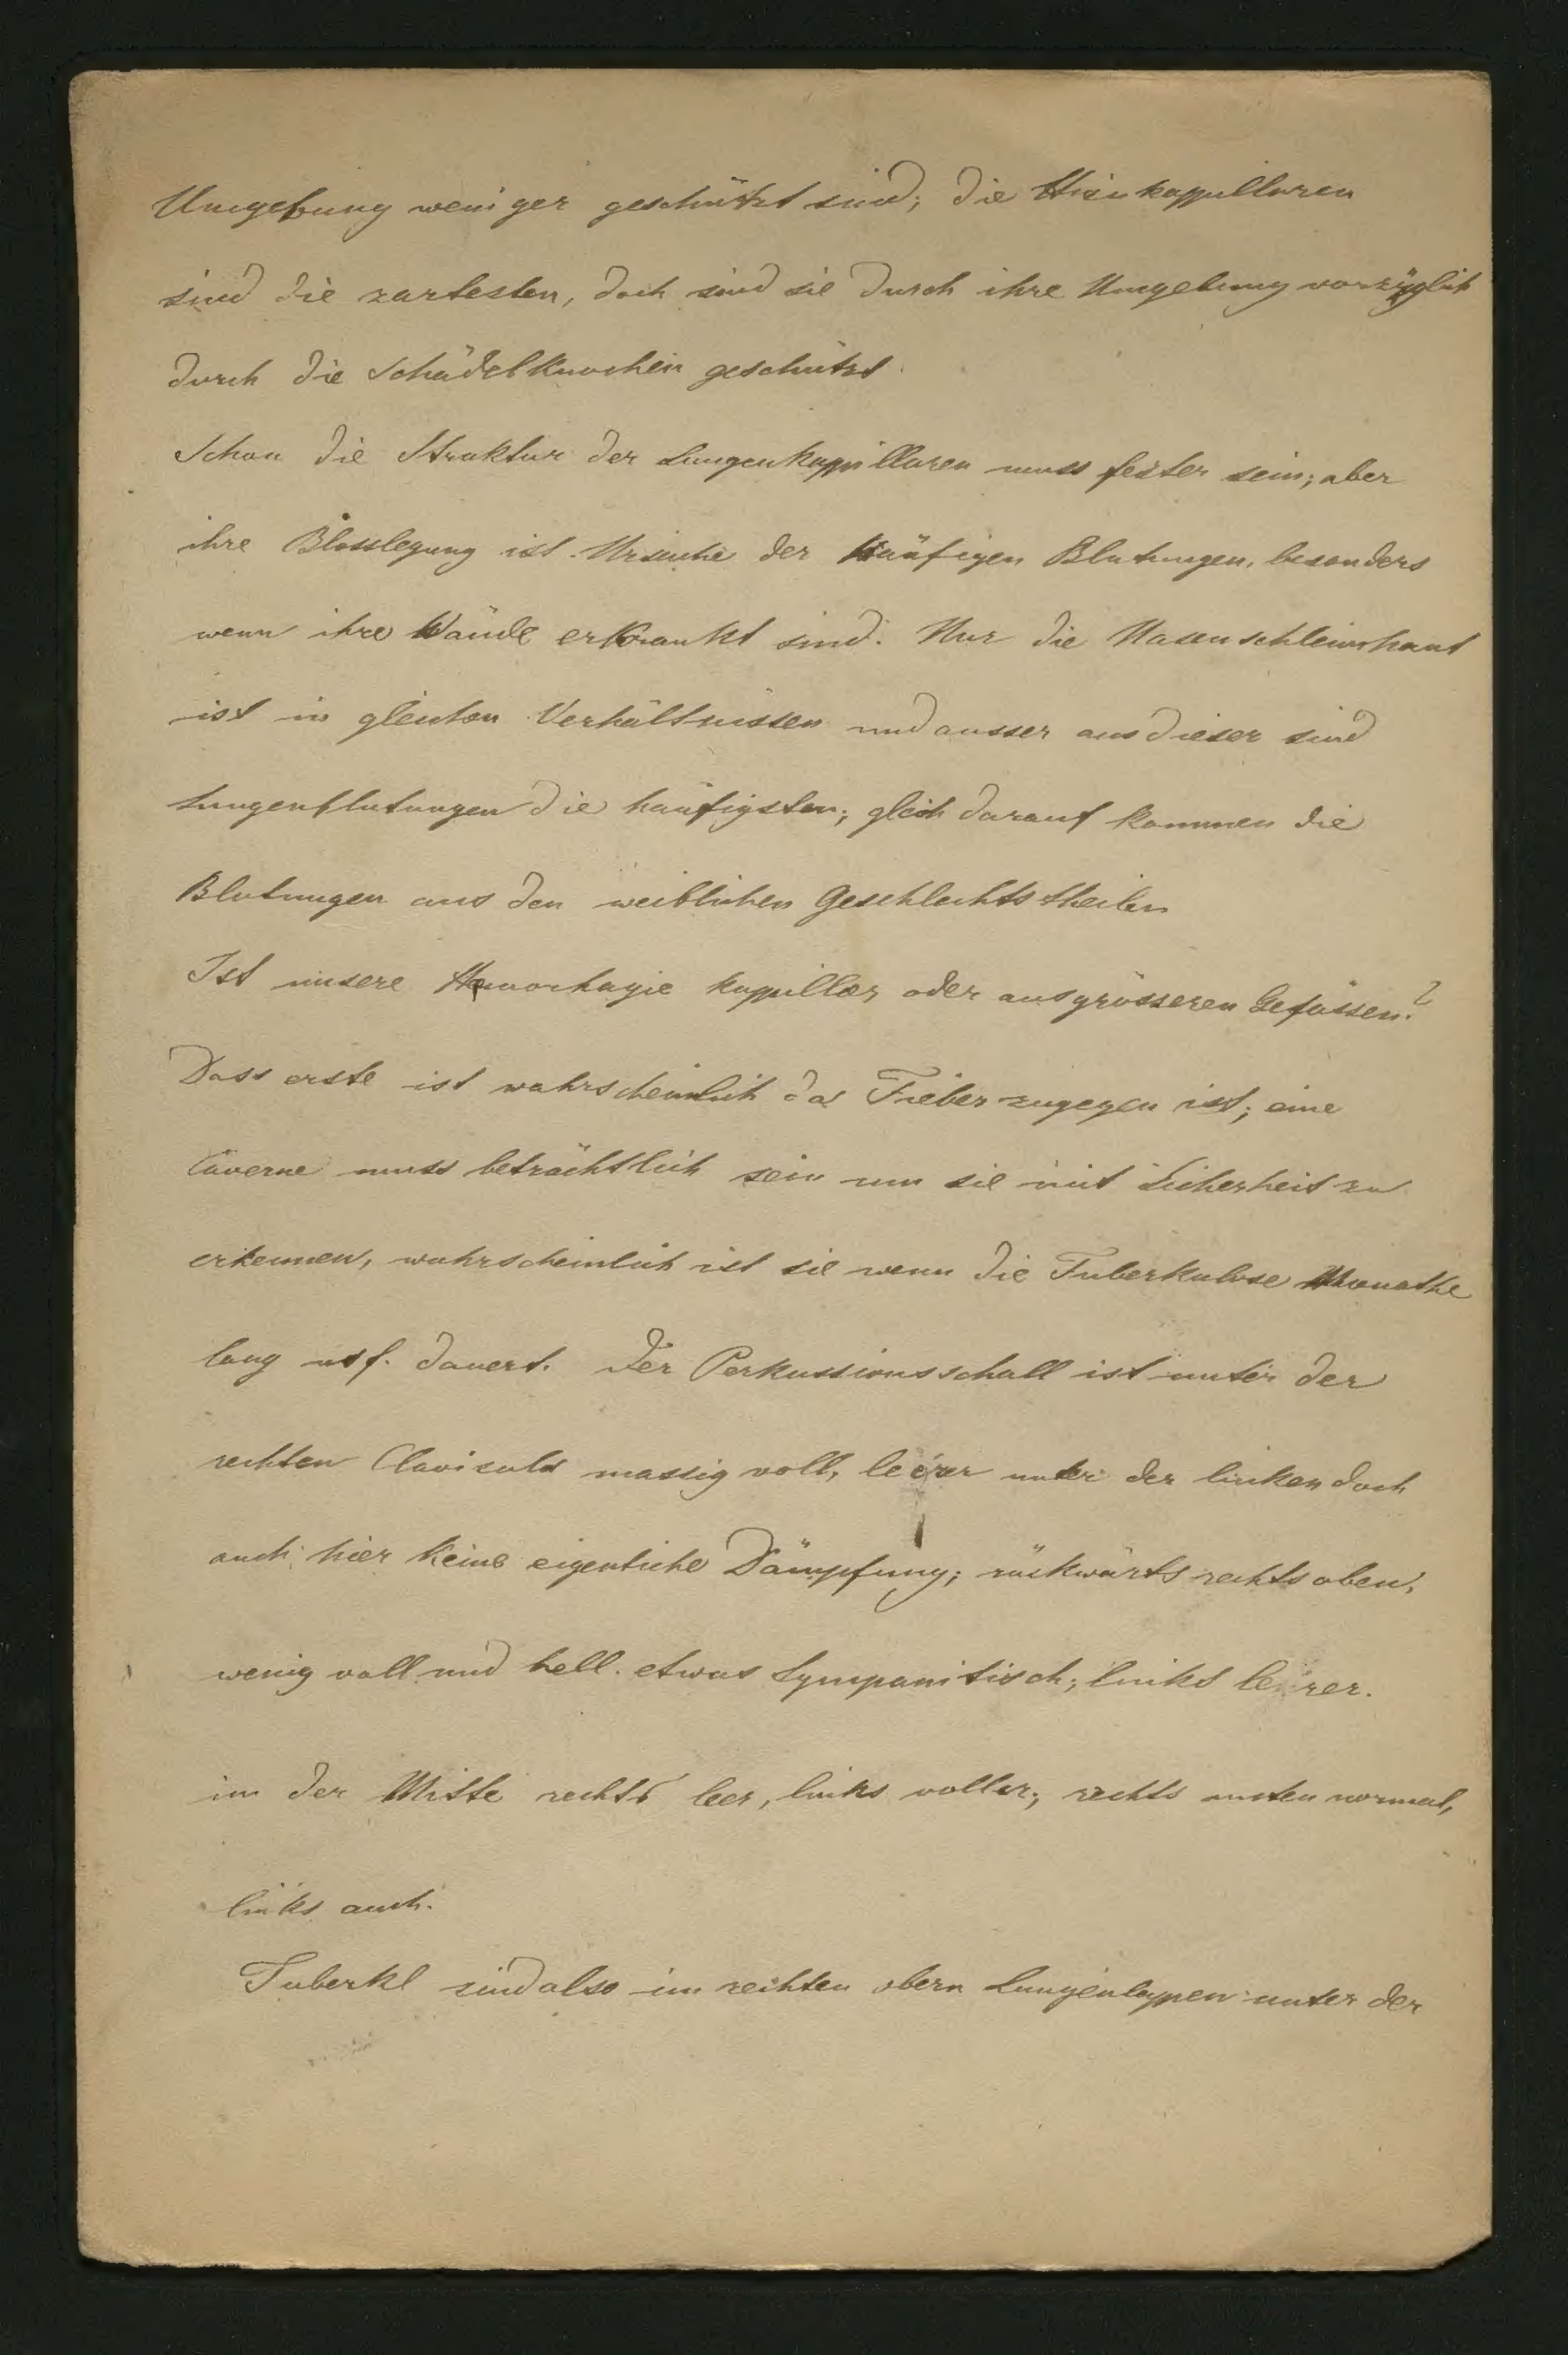 Umgebung weniger geschützt sind; die Hirnkappillaren
sind die zartesten, doch sind sie durch ihre Umgebung vorzüglich
durch die Schädelknochen geschützt.
Schon die Struktur der Lungenkappillaren muss fester sein; aber
ihre Blosslegung ist Ursache der häufigen Blutungen, besonders
wenn ihre Wände erkrankt sind. Nur die Nasenschleimhaut
ist in gleichen Verhältnissen und ausser aus dieser sind
Lungenblutungen die häufigsten; gleich darauf kommen die
Blutungen aus den weiblichen Geschlechtstheilen
Ist unsere Hemorhagie kappillär oder aus grösseren Gefässen?
Dass erste ist wahrscheinlich da Fieber zugegen ist; eine
Caverne muss beträchtlich sein um sie mit Sicherheit zu
erkennen, wahrscheinlich ist sie wenn die Tuberkulose Monathe
lang usf. dauert. Der Perkussionsschall ist unter der
rechten Clavicula massig voll, leerer unter der linken doch
auch hier keine eigentliche Dämpfung; rückwärts rechts oben,
wenig voll und hell. etwas tympanitisch; links leerer.
in der Mitte rechts leer, links voller; rechts unten normal,
links auch.
Tuberkl sind also im rechten obern Lungenlappen unter der